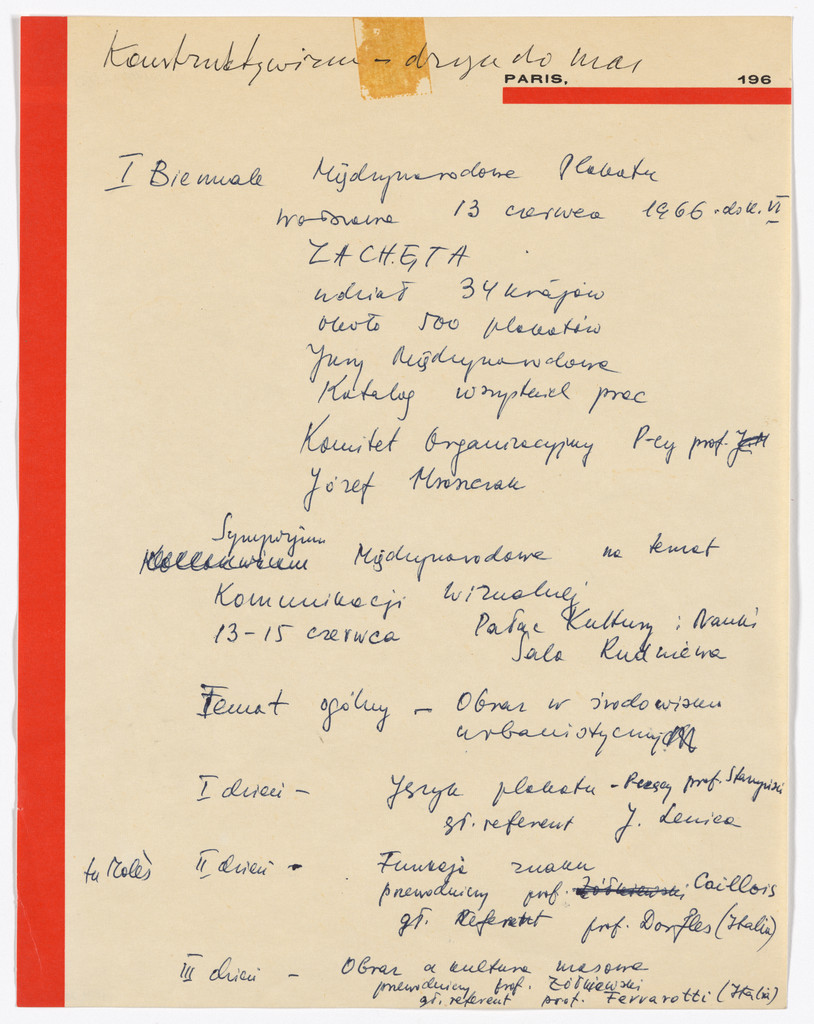 Konstruktywizm – do mas
PARIS, 196
I Biennale Międzynarodowe Plakatu
Warszawa 13 czerwca 1966 VI
ZACHĘTA
udział 34 krajów
około 500 plakatów
Jury Międzynarodowe
Katalog wszystkich prac
Komitet Organizacyjny P-cy prof.
Józef Mroszczak
Sympozjum
Międzynarodowe na temat
Komunikacji Wizualnej
13–15 czerwca Pałac Kultury i Nauki
Sala Rudniewa
Temat ogólny – Obraz w środowisku
urbanistycznym
I dzień – Język plakatu – prof. Starzyński
gł. referent J. Lenica
tu Molès II dzień – Funkcja znaku
przewodniczy prof. Żółkiewski Caillois
gł. Referent prof. Dorfles (Italia)
III dzień – Obraz a kultura masowa
przewodniczy prof. Żółkiewski
gł. referent prof. Ferrarotti (Italia)